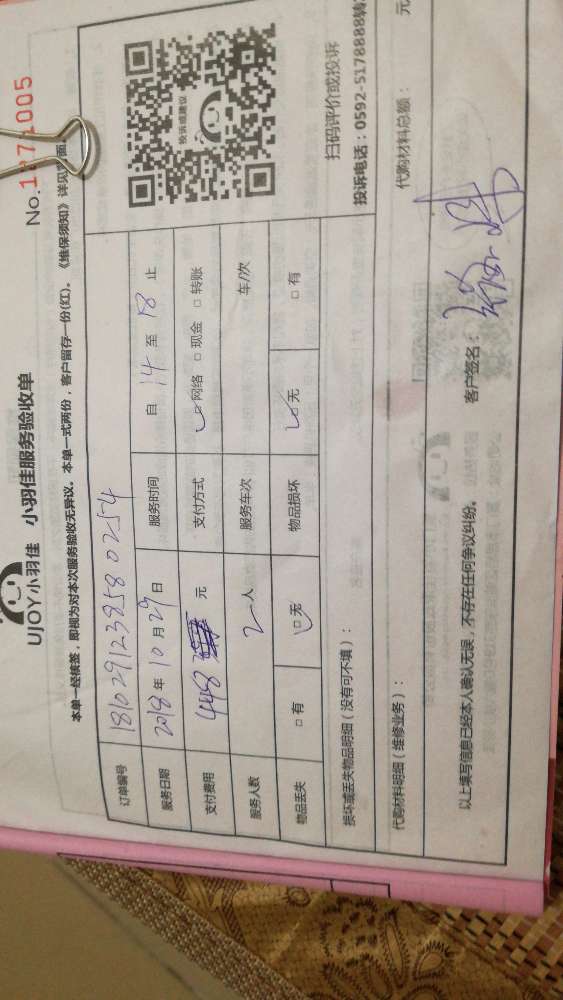 UJOY小羽佳 小羽佳服务验收单
本单一经核签，即视为对本次服务验收无异议。本单一式两份，客户留存一份(红)。《维保须知》详见
订单编号 1810291238580254
服务日期 2018年10月29日 服务时间 自 14 至 18 止
支付费用 448 元 支付方式 ☑网络 □现金 □转账
服务人数 2人 服务车次 车/次
物品丢失 □有 ☑无 物品损坏 ☑无 □有
投诉或建议
扫码评价或投诉
投诉电话：0592-5178888转
损坏或丢失物品明细（没有可不填）：
代购材料明细（维修业务）： 代购材料总额： 元
以上填写信息已经本人确认无误，不存在任何争议纠纷。 客户签名：